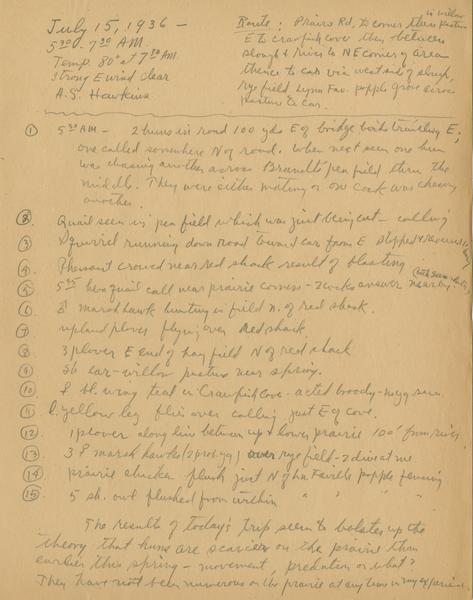 July 15, 1936 –
5:30 - 7:30 AM.
Temp. 80° at 7:30 AM.
Strong E wind clear
A.S. Hawkins
Route: Prairie Rd, to corner thru pasture
in willow
E to crawfish cove then between
slough & river to NE corner of area
thence to car via west end of slough,
rye field, Lynn Fav. popple grove across
pasture & car.
① 5:30 AM – 2 huns in road 100 yds E of bridge birds traveling E;
one called somewhere N of road. When next seen one hun
was chasing another across Brandts' pea field thru the
middle. They were either mating or one cock was chasing
another.
② Quail seen in pea field which was just being cut – calling
③ Squirrel running down road toward car from E stopped &
④ Pheasant crowed near red shack result of blasting
⑤ 5:45 hen quail call near prairie corner – 2 cocks answer nearby
⑥ ♂ marsh hawk hunting in field N. of red shack.
⑦ upland plover flying over red shack
⑧ 3 plover E end of hay field N of red shack
⑨ ear - willow pasture near spring.
⑩ ♀ bl. wing teal in Crawfish Cove - acted broody - no yg seen
⑪ L. yellow leg flies over calling just E of cove.
⑫ 1 plover along line between up & lower prairie 100' from river.
⑬ 3 ♀ marsh hawks (2 prob. yg) over rye field - 2 dive at me
⑭ prairie chicken flush just N of Ln Faville popple fencing
⑮ 5 sh. owl flushed from within " " " "
The results of today's trip seem to bolster up the
theory that huns are scarcer on the prairie than
earlier this spring – movement, predation or what?
They have not been numerous on the prairie at any time in my experience